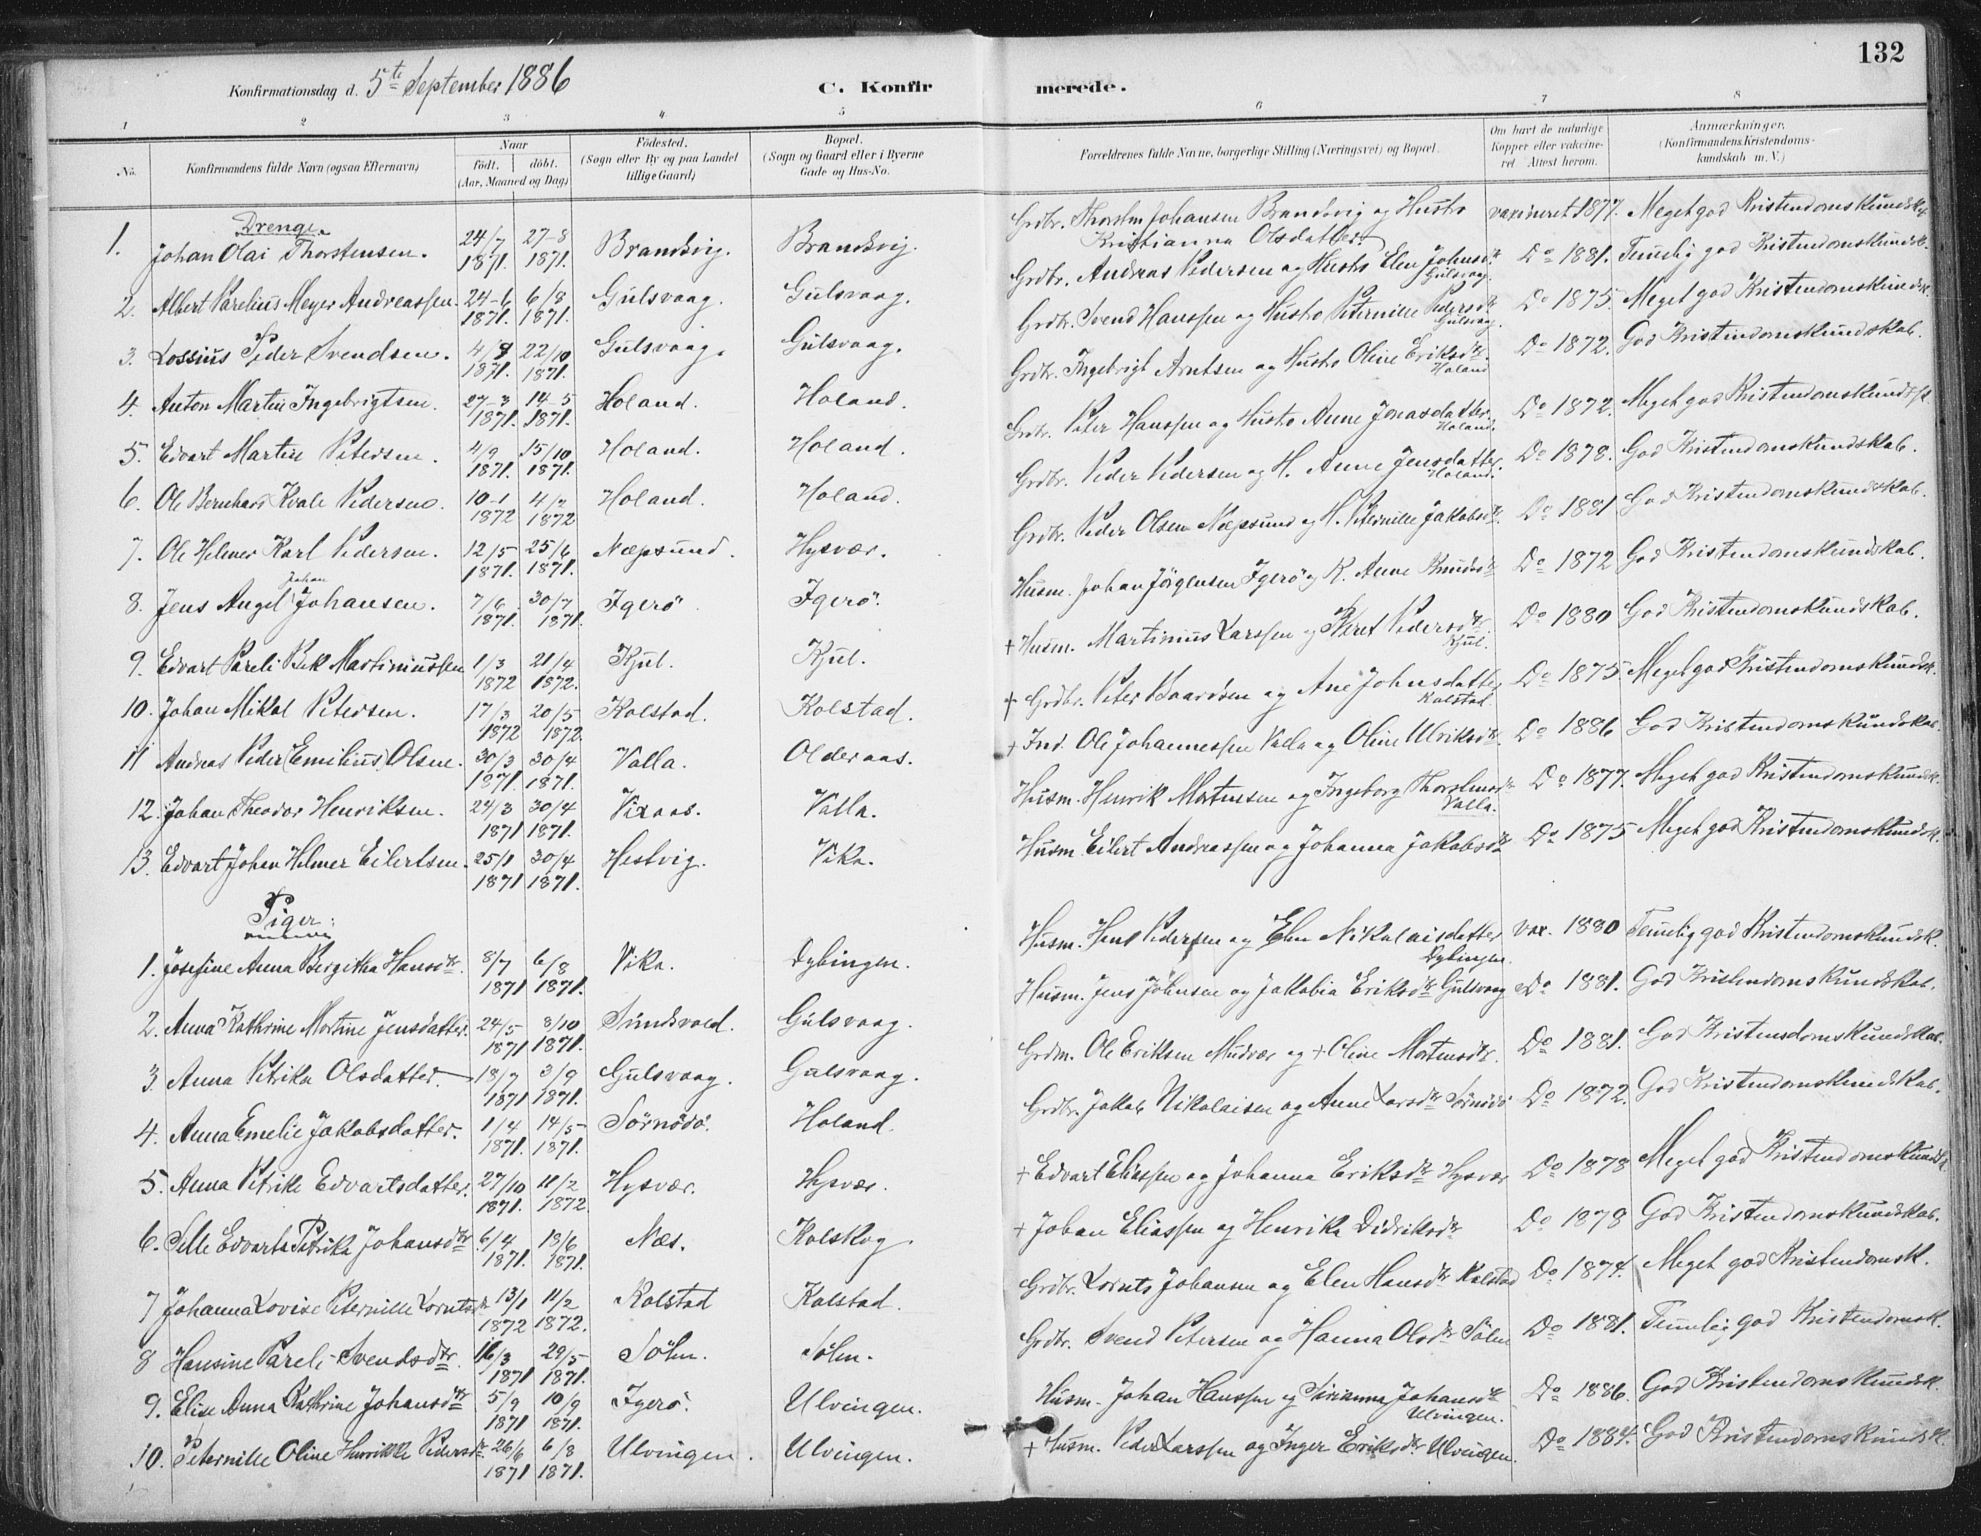 132
Konfirmationsdag d. 5te September 1886
C. Konfirmerede.
1 2 3 4 5 6 7 8
No. Konfirmandens fulde Navn (ogsaa Efternavn) Naar födt. döbt. (Aar, Maaned og Dag) Födested. (Sogn eller By og paa Landet tillige Gaard) Bopæl. (Sogn og Gaard eller i Byerne Gade og Hus-No. Forældrenes fulde Navne, borgerlige Stilling (Næringsvei) og Bopæl. Om havt de naturlige Kopper eller vakcineret Attest herom. Anmærkninger. (Konfirmandens Kristendomskundskab m. V.)
Drenge
1. Johan Olai Thorstensen. 24/7 1871. 27-8 1871. Brandsvig. Brandsvig. Grdbr. Johansen Brandsvig og Hustro Kristianna Olsdatter. vaxineret 1877. Meget god Kristendomskundskab
2. Albert Parelius Meyer Andreassen. 24-6 1871. 6/8 1871. Gulsvaag. Gulsvaag. Grdbr. Andreas Pedersen og Hustro Elen Johnsdtr Gulsvaag. Do 1881. Temelig god Kristendomskundsk.
3. Lossius Peder Svendsen. 22/10 1871. Gulsvaag. Gulsvaag. Grdbr. Svend Hanssen og Hustro Peternille Pedersdtr Gulsvag. Do 1875. Meget god Kristendomskundsk.
4. Anton Martin Ingebrigtsen. 27-3 1871. 14-5 1871. Holand. Holand. Grdbr. Ingebrigt Arntsen og Hustro Oline Eriksdtr. Holand Do 1872. God Kristendomskundskab.
5. Edvart Martin Petersen. 4/9 1871. 15/10 1871. Holand. Holand. Grdbr. Peter Hanssen og Hustro Anne Jonasdatter Holand. Do 1872. Meget god Kristendomskundsk
6. Ole Bernhard Kvale Pedersen. 10-1 1872 1872 Holand. Holand. Grdbr. Peder Pedersen og H. Anne Jensdatter Holand. Do 1878. God Kristendomskundskab.
7. Ole Helmer Karl Pedersen. 12/5 1871. 25/6 1871. Næpsund. Hysvær. Grdbr. Peder Olsen Næpsund og H. Peternille Jakobsdtr. Do 1881 God Kristendomskundskab.
8. Jens Angel Johan Johansen. 7/6 1871. 30/7 1871. Igerö Igerö. Husm. Johan Jörgensen Igerö og K. Anne Knudsdtr Do 1872 God Kristendomskundskab.
9. Edvart Pareli Bek Martiniussen 1/3 1872 21/4 1872. Kjul. Kjul. + Husm. Martinius Larssen og Beret Pedersdtr. Kjul. Do 1880 God Kristendomskundskab.
10. Johan Mikal Petersen. 17/3 1872 20/5 1872. Kolstad. Kolstad. + Grdbr. Peter Baardsen og Ane Johnsdatter Kolstad. Do 1875 Meget god Kristendomskundsk.
11 Andreas Peder (Emilius) Olsen. 30/3 1871. 30/4 1871. Valla. Olderaas. + Ind. Ole Johannessen Valla og Oline Ulriksdtr. Do 1886 God Kristendomskundskab.
12. Johan Theodor Henriksen. 24/3 1871 30/4 1871. Vixaas. Valla. Husm. Henrik Mortensen og Ingeborg Valla. Do 1877. Meget god Kristendomskundsk.
13. Edvart Johan Helmer Eilertsen. 25/1 1871 30/4 1871. Hestvig. Vika. Husm. Eilert Andreassen og Johanna Jakobsdtr Do 1875 Meget god Kristendomskundsk.
Piger:
1. Josefine Anna Bergitha Hansdtr. 8/7 1871 6/8 1871. Vika. Dybingen. Husm. Hans Pedersen og Elen Nikolaisdatter Dybingen. vax. 1880 Temelig god Kristendomskundsk.
2. Anna Kathrine Mortine Jensdatter. 24/5 1871 8/10 1871. Sundsvold. Gulsvaag. Husm. Jens Johnsen og Jakobia Eriksdtr Gulsvaag Do 1881. God Kristendomskundskab.
3. Anna Petrika Olsdatter. 18/7 1871 3/9 1871. Gulsvaag. Gulsvaag. Grdm. Ole Eriksen Mudvær og + Oline Mortensdtr. Do 1881. God Kristendomskundskab.
4. Anna Emelie Jakobsdatter. 1/4 1871. 14/5 1871. Sörnösö. Holand. Grdbr. Jakob Nikolaisen og Anne Larsdtr Sörnösö Do 1872. God Kristendomskundskab.
5. Anna Petrike Edvartsdatter. 27/10 1871. 11/2 1872 Hysvær. Hysvær. + Edvart Eliassen og Johanna Eriksdtr Hysvær Do 1878 Meget god Kristendomskundsk
6. Edvarta Petrika Johansdtr. 6/4 1871. 18/6 1871. Næs. Kolskog. + Johan Eliassen og Henrika Didriksdtr Do 1878 God Kristendomskundskab.
7 Johanna Lovise Peternille Lorntsdtr 13/1 1872 11/2 1872. Kolstad Kolstad. Grdbr. Lornts Johansen og Elen Hansdtr Kolstad Do 1874. Meget god Kristendomsk.
8 Hansine Pareli Svendsdtr. 16/3 1871 29/5 1871. Sölen. Sölen. Grdbr. Svend Petersen og Hanna Olsdtr Sölen Do 1881. Temelig god Kristendomsk.
9. Elise Anna Kathrine Johansdtr 5/9 1871 10/9 1871. Igerö. Ulvingen. Husm. Johan Hanssen og Sirianna Johansdtr Ulvingen. Do 1886. God Kristendomskundsk.
10. Peternille Oline Henrikke Pedersdtr 26/6 1871 6/8 1871. Ulvingen. Ulvingen. + Husm. Peder Larssen og Inger Eriksdtr Ulvingen. Do 1884. God Kristendomskundsk.